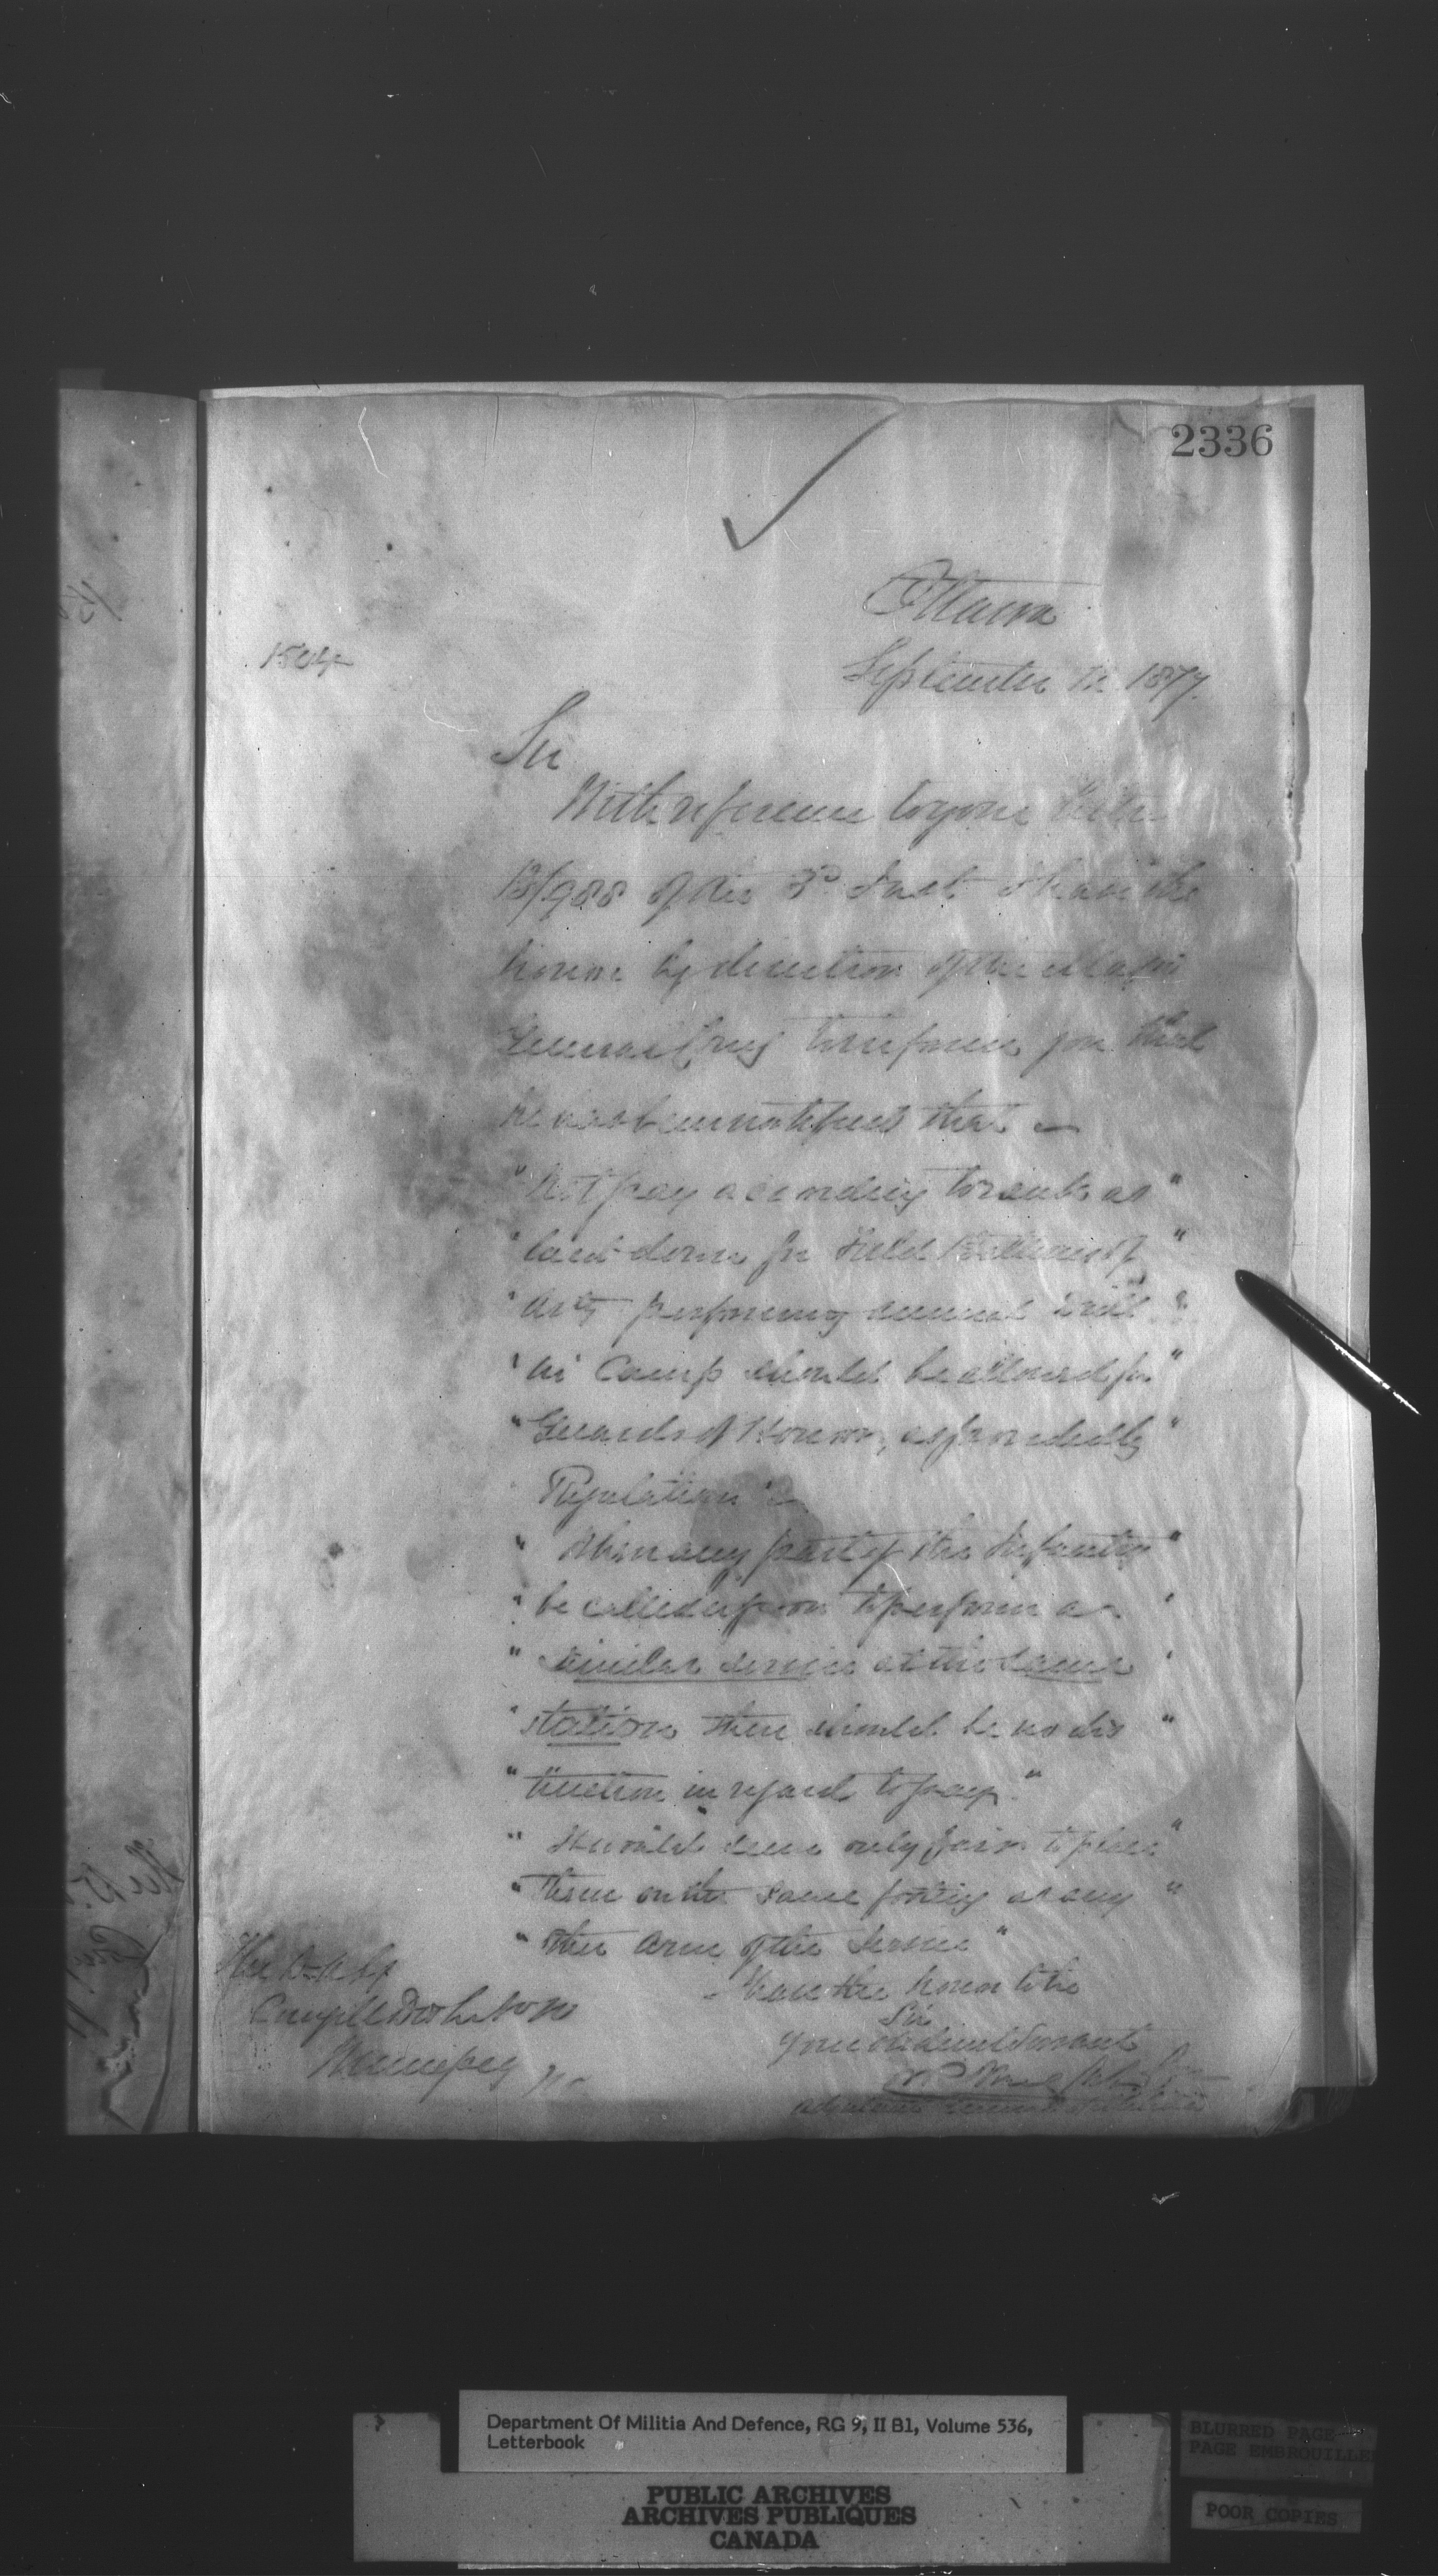 2336
Ottawa
September 12 1877.
Sir
With reference to your letter
13/988 of the 3rd Inst I have the
honor by direction of the Major
General Comg to inform you that
he has been notified that
" Net pay according to rank as "
" laid down for Field Batteries of "
" Arty performing annual drill "
" in Camp should be allowed for "
" Guards of Honor, as provided by "
Regulation
" When any part of the Infantry "
" be called upon to perform a "
" similar service at the same "
" station there should be no dis "
" tinction in regard to pay. "
" It would seem only fair to place "
" them on the same footing as any "
" other arm of the Service "
I have the honor to be
Sir
Your obedient Servant
Adjutant General of Militia
The D.A.G.
Winnipeg
Department Of Militia And Defence, RG 9, II B1, Volume 536,
Letterbook
PUBLIC ARCHIVES
ARCHIVES PUBLIQUES
CANADA
BLURRED PAGE
PAGE EMBROUILLE
POOR COPIES